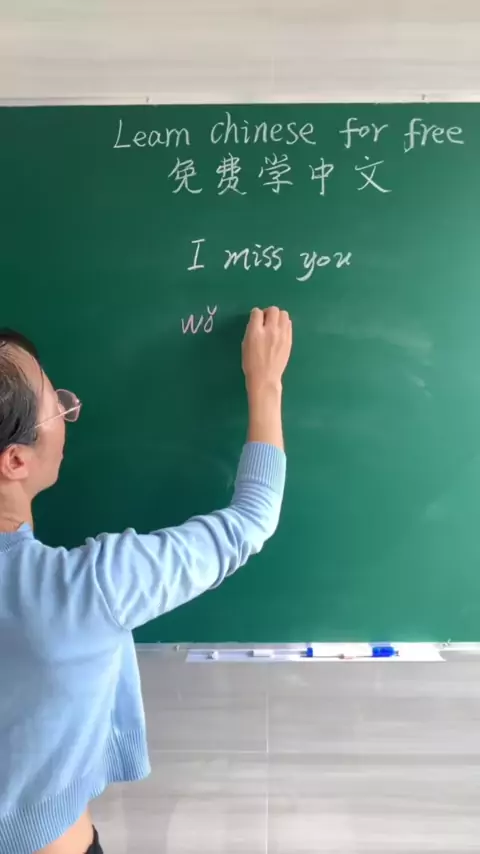 Learn chinese for free
免费学中文
I miss you
wǒ